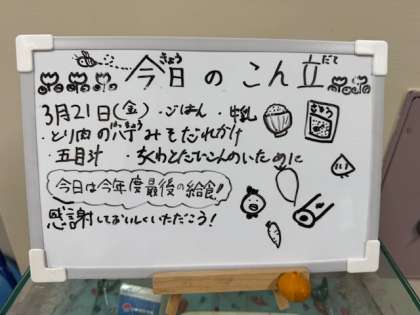 今日のこん立
きょう だて
3月21日(金)・ごはん・牛乳
・とり肉の八丁みそだれかけ
はっちょう
・五目汁 ・ちくわとだいこんのいために
今日は今年度最後の給食!!
感謝しておいしくいただこう!